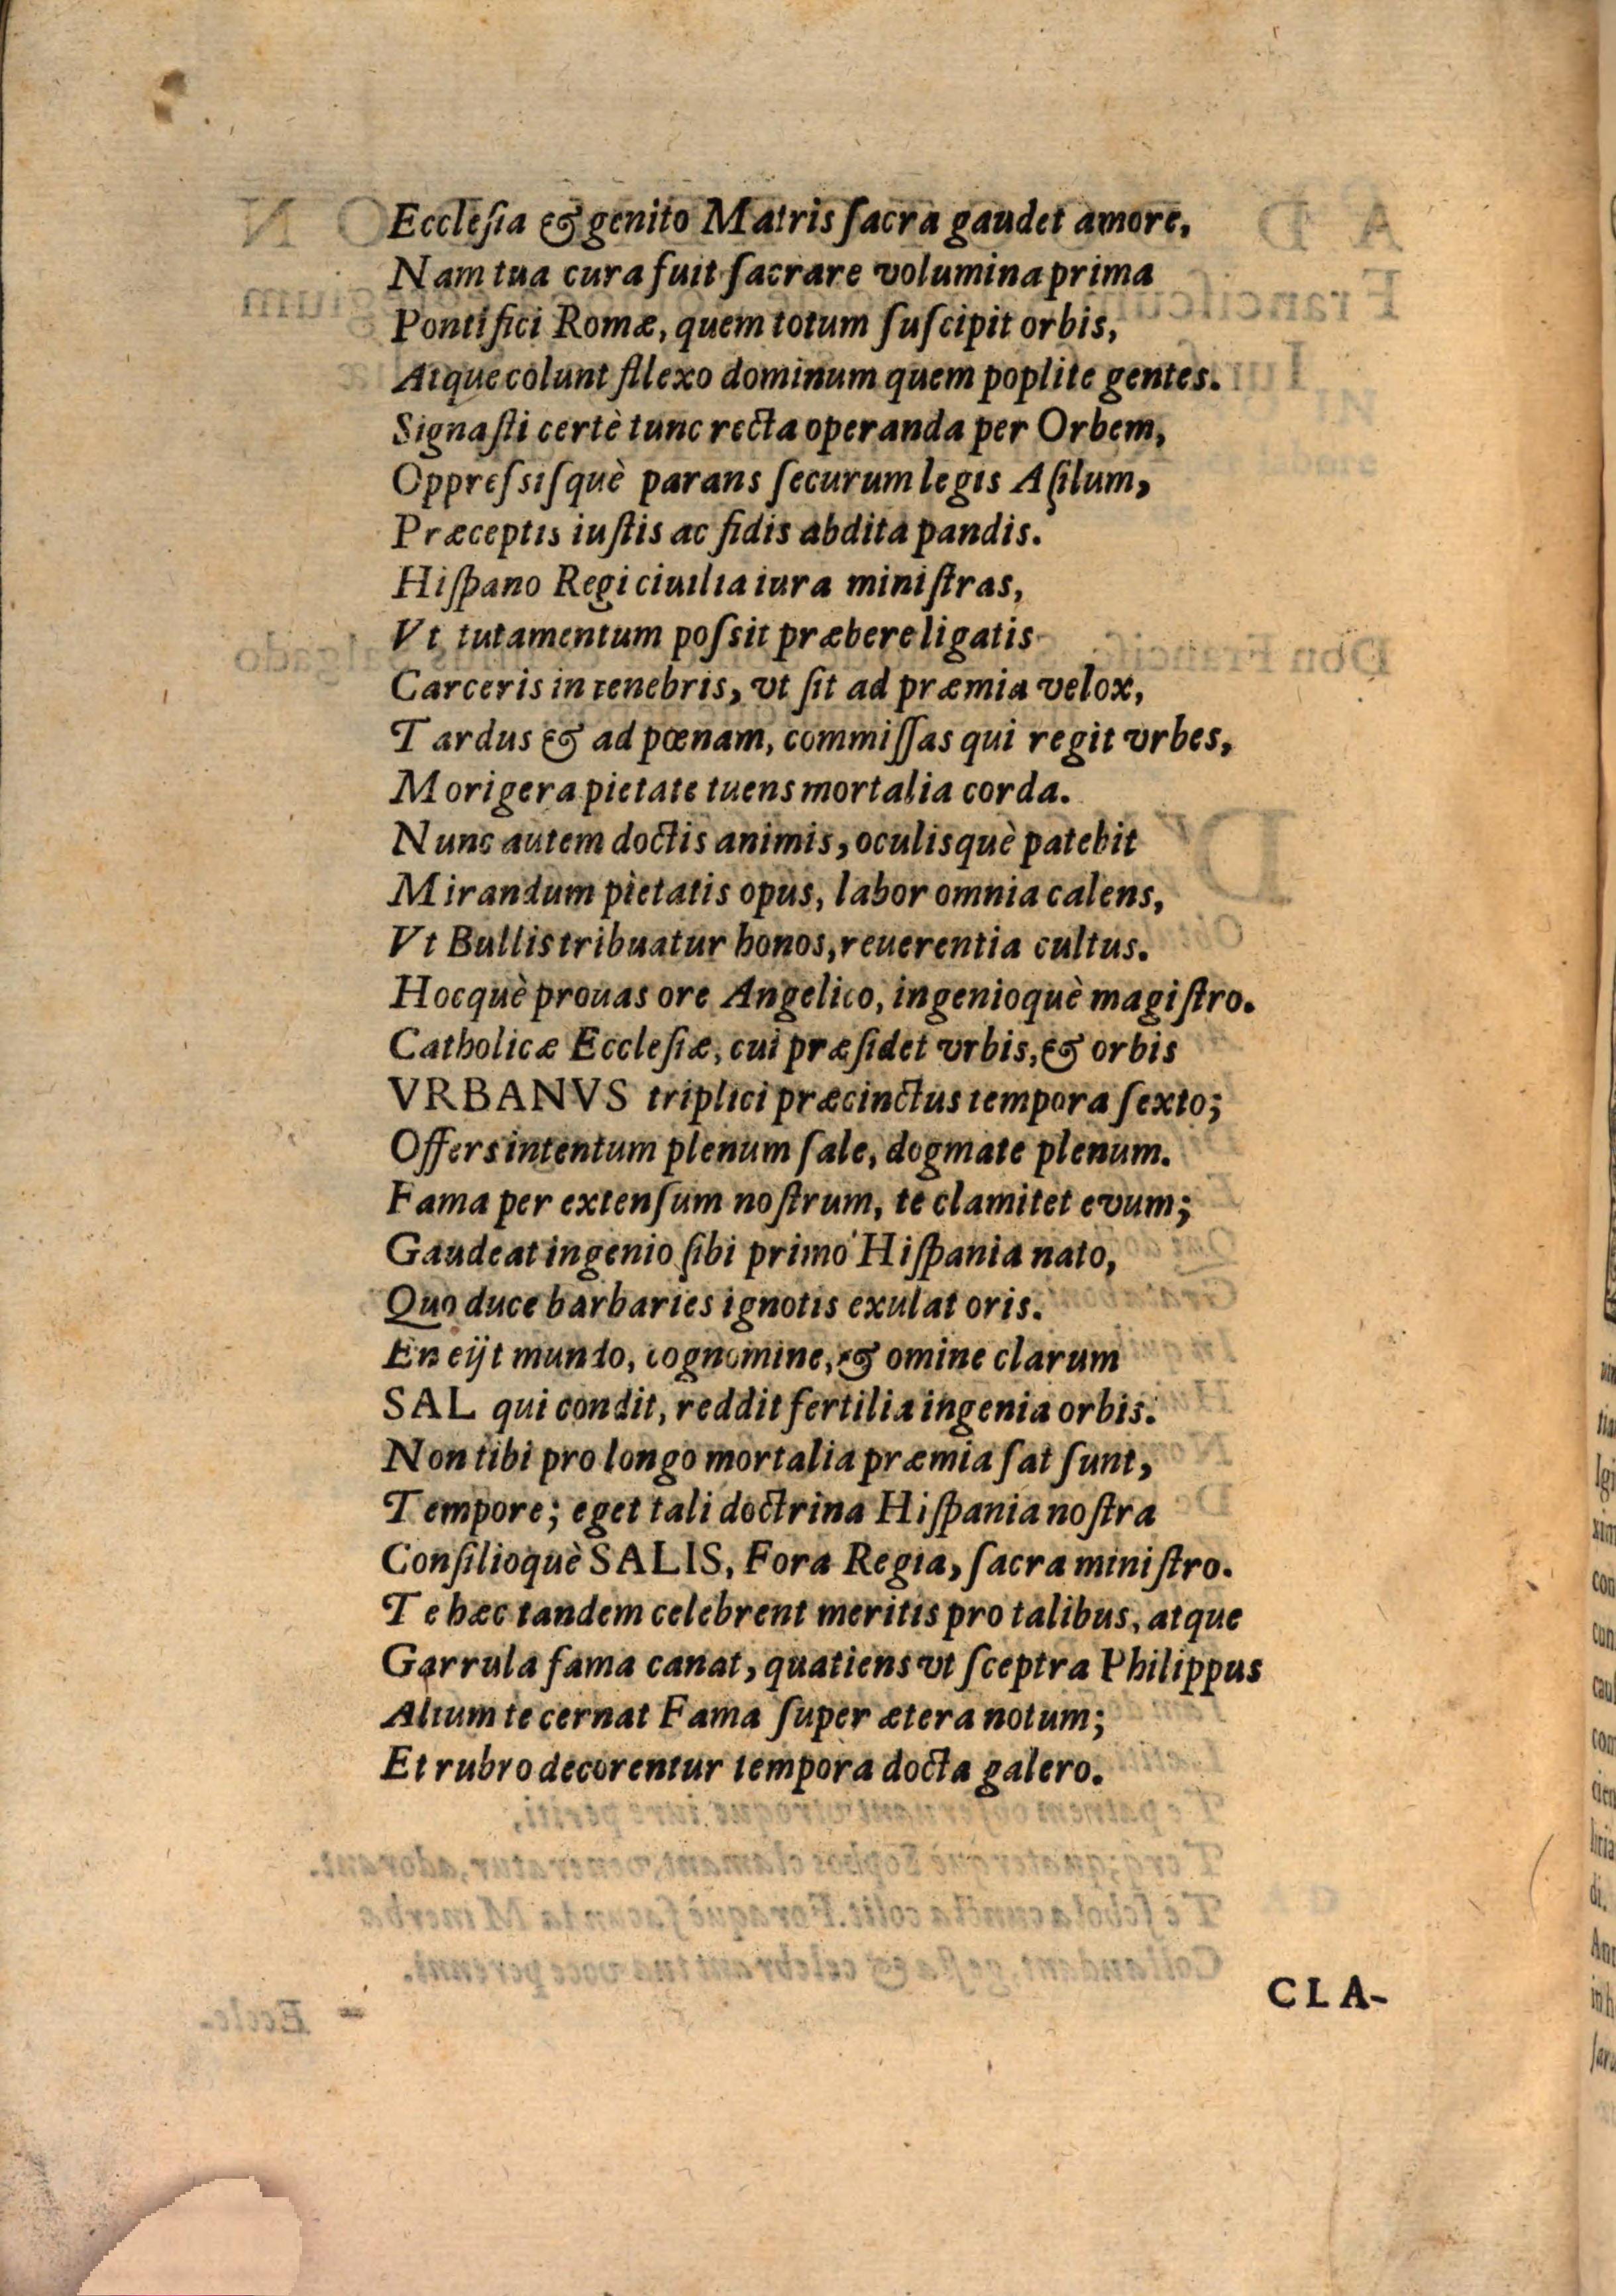 Ecclesia & genito Matris sacra gaudet amore,
Nam tua cura fuit sacrare volumina prima
Pontifici Romæ, quem totum suscipit orbis,
Atque colunt fllexo dominum quem poplite gentes.
Signasti certè tunc recta operanda per Orbem,
Oppressisquè parans securum legis Asilum,
Præceptis iustis ac fidis abdita pandis.
Hispano Regi ciuilia iura ministras,
Vt tutamentum possit præbere ligatis
Carceris in tenebris, vt sit ad præmia velox,
Tardus & ad pœnam, commissas qui regit vrbes,
Morigera pietate tuens mortalia corda.
Nunc autem doctis animis, oculisquè patebit
Mirandum pietatis opus, labor omnia calens,
Vt Bullis tribuatur honos, reuerentia cultus.
Hocquè prouas ore Angelico, ingenioquè magistro.
Catholicæ Ecclesiæ, cui præsidet vrbis, & orbis
VRBANVS triplici præcinctus tempora sexto;
Offers intentum plenum sale, dogmate plenum.
Fama per extensum nostrum, te clamitet evum;
Gaudeat ingenio sibi primo Hispania nato,
Quo duce barbaries ignotis exulat oris.
En eijt mundo, cognomine, & omine clarum
SAL qui condit, reddit fertilia ingenia orbis.
Non tibi pro longo mortalia præmia sat sunt,
Tempore; eget tali doctrina Hispania nostra
Consilioquè SALIS, Fora Regia, sacra ministro.
Te hæc tandem celebrent meritis pro talibus, atque
Garrula fama canat, quatiens vt sceptra Philippus
Altum te cernat Fama super ætera notum;
Et rubro decorentur tempora docta galero.
CLA-